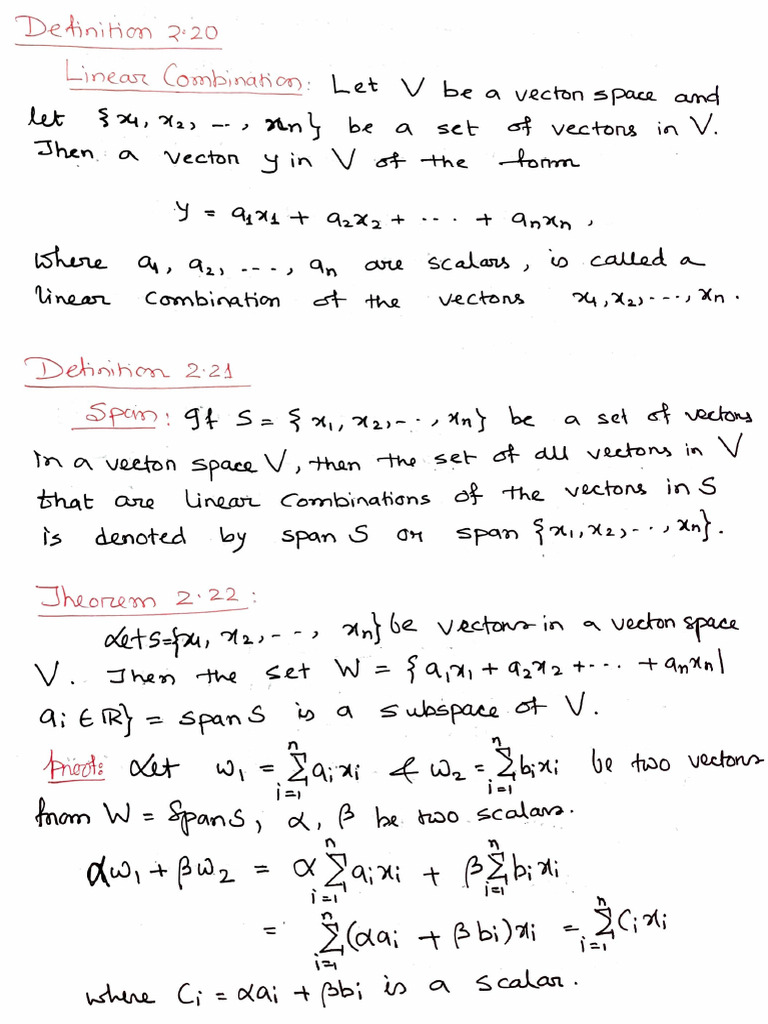 Definition 2.20
Linear Combination: Let V be a vector space and
let {x₁, x₂, ..., xₙ} be a set of vectors in V.
Then a vector y in V of the form
y = a₁x₁ + a₂x₂ + ... + aₙxₙ,
where a₁, a₂, ..., aₙ are scalars, is called a
linear combination of the vectors x₁, x₂, ..., xₙ.
Definition 2.21
Span: If S = {x₁, x₂, ..., xₙ} be a set of vectors
in a vector space V, then the set of all vectors in V
that are linear combinations of the vectors in S
is denoted by span S or span {x₁, x₂, ..., xₙ}.
Theorem 2.22:
Let S={x₁, x₂, ..., xₙ} be vectors in a vector space
V. Then the set W = {a₁x₁ + a₂x₂ + ... + aₙxₙ|
aᵢ ∈ ℝ} = span S is a subspace of V.
Proof: Let w₁ = ∑ᵢ₌₁ⁿ aᵢxᵢ & w₂ = ∑ᵢ₌₁ⁿ bᵢxᵢ be two vectors
from W = Span S, α, β be two scalars.
αw₁ + βw₂ = α∑ᵢ₌₁ⁿ aᵢxᵢ + β∑ᵢ₌₁ⁿ bᵢxᵢ
= ∑ᵢ₌₁ⁿ (αaᵢ + βbᵢ)xᵢ = ∑ᵢ₌₁ⁿ Cᵢxᵢ
where Cᵢ = αaᵢ + βbᵢ is a scalar.